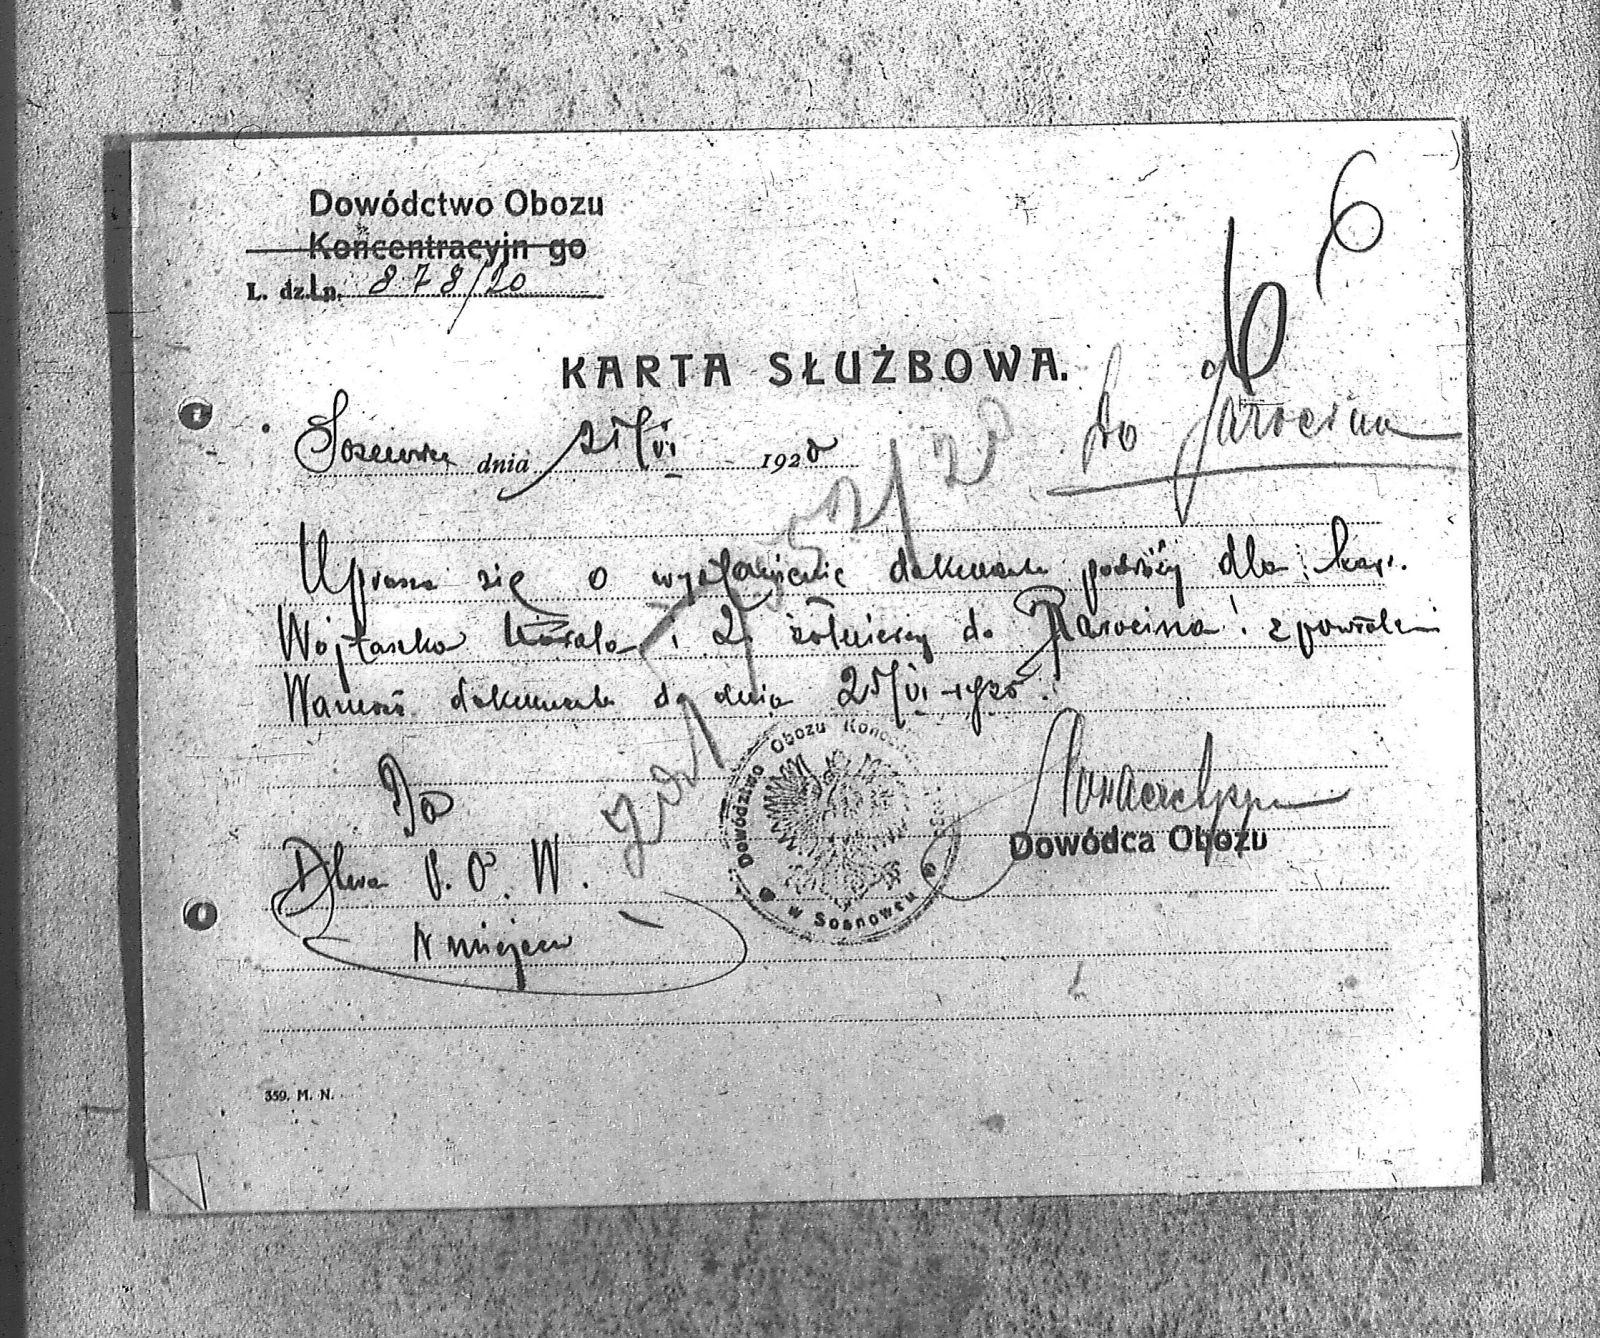 6
Dowództwo Obozu
Koncentracyjn go
L. dz. Lp. 878/20
6
KARTA SŁUŻBOWA.
do Jarocina
Sosnowiec dnia 21/VI 1920
Uprasza się o wystawienie dokumentu podróży dla kap.
Wojtaszka Karola i 2 żołnierzy do Jarocina z powrotem
Ważność dokumentu do dnia 25/VI 1920.
Do
Dtwa P. O. W.
w miejscu
Dowódca Obozu
Dowództwo Obozu Koncent
w Sosnowcu
359. M. N.